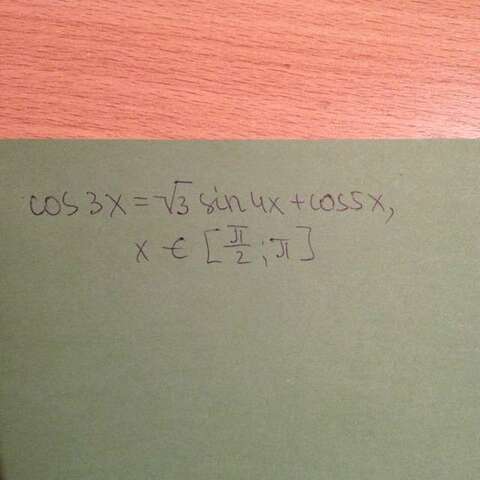 cos 3x = √3 sin 4x + cos 5x,
x ∈ [π/2; π]